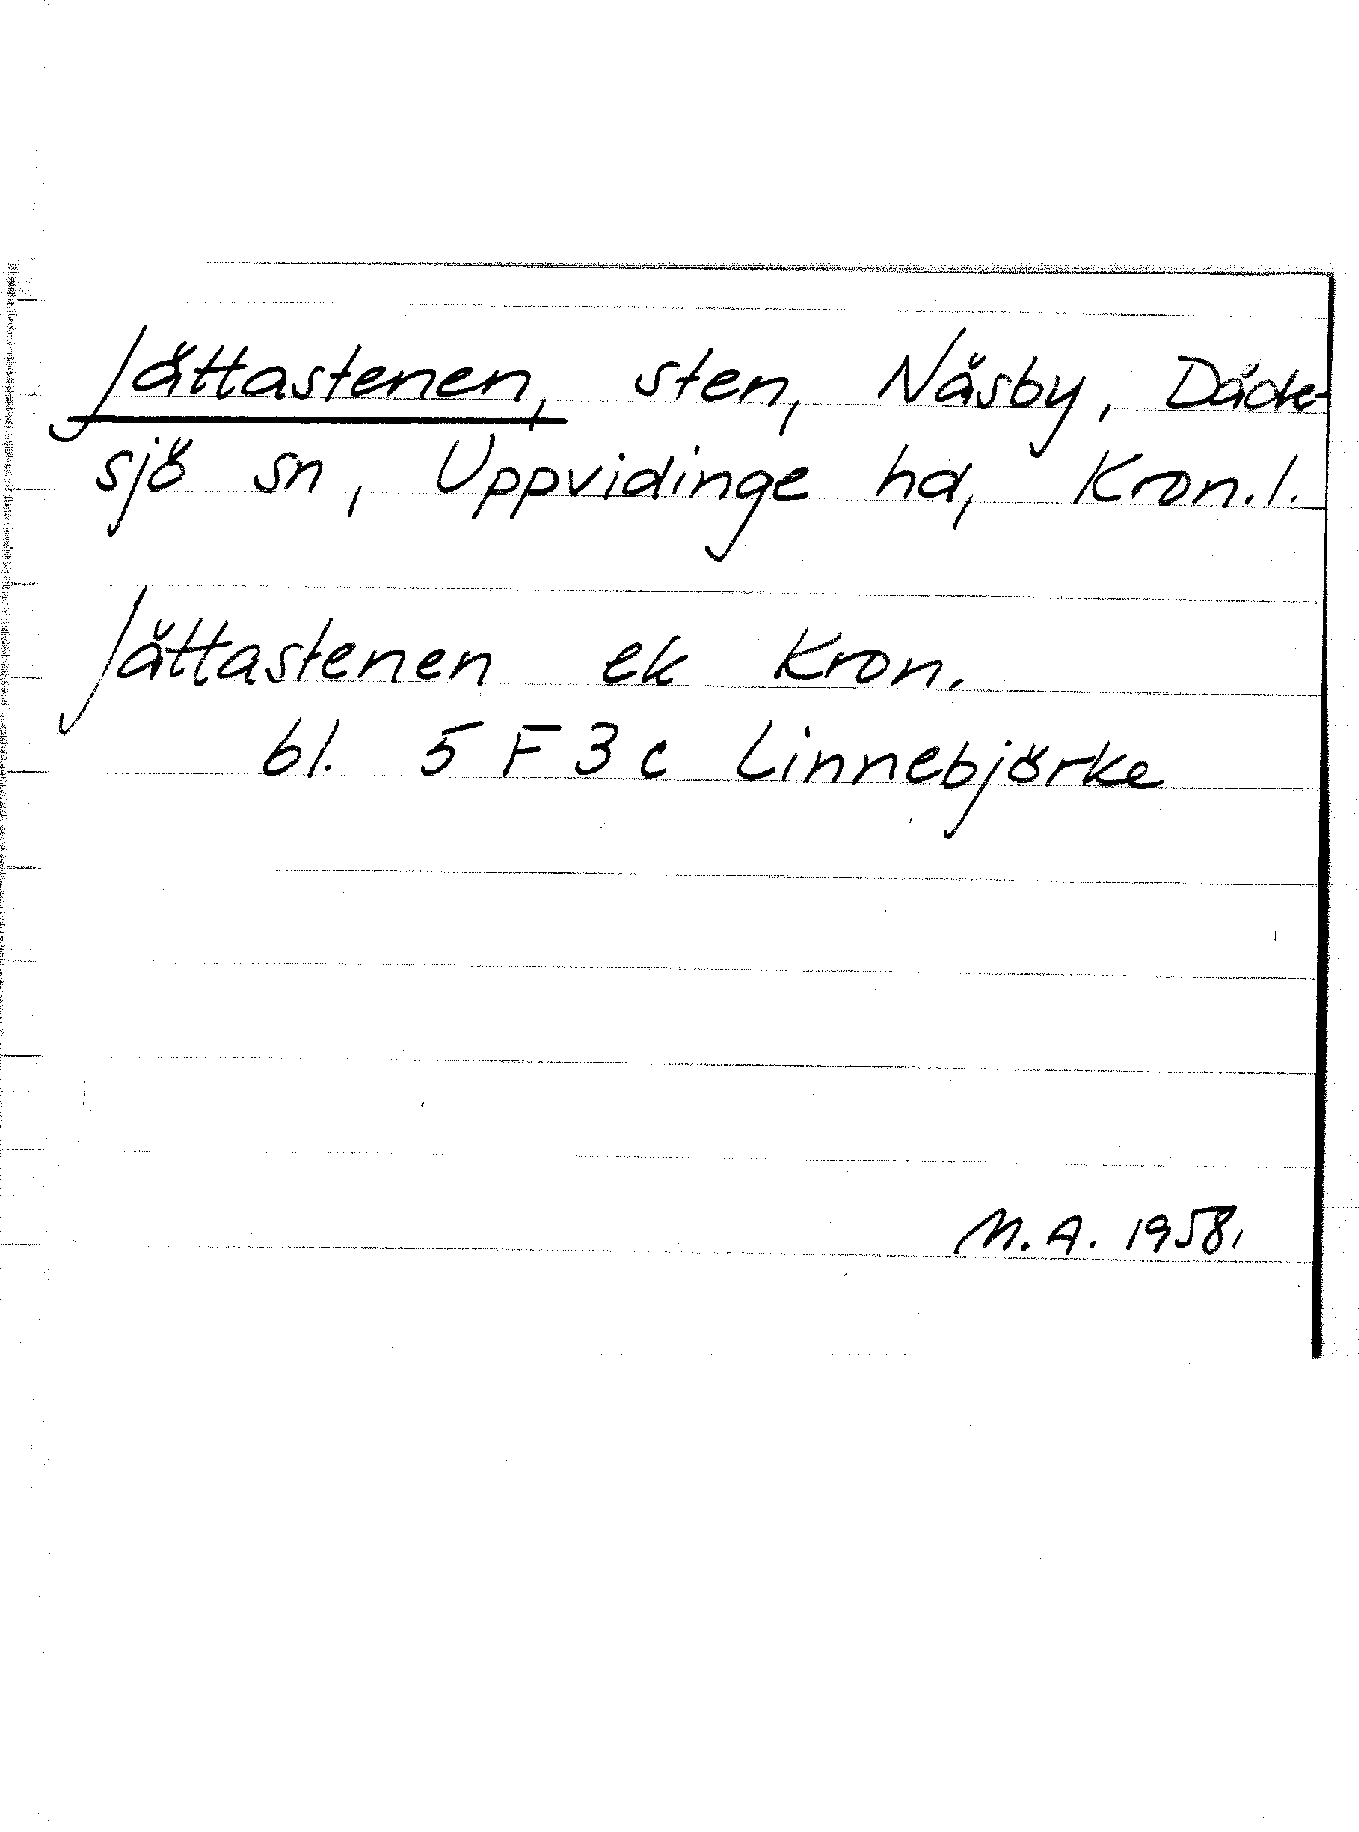 Jättastenen, sten, Näsby, Dädde-
sjö sn, Uppvidinge hd, Kron. l.
Jättastenen ek Kron.
bl. 5 F 3 c Linnebjörke
M. A. 1958.